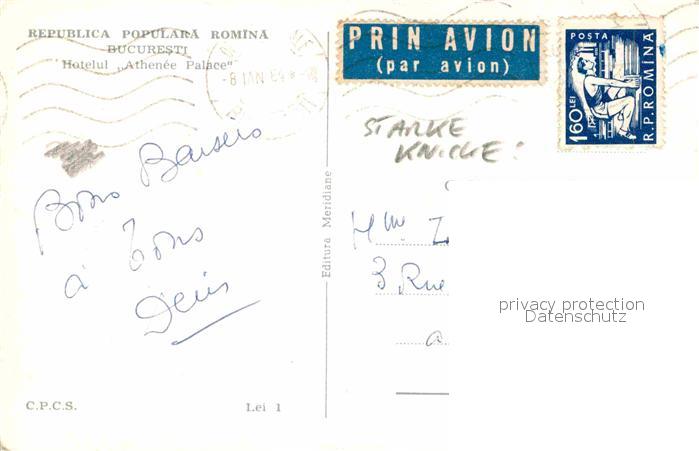 REPUBLICA POPULARĂ ROMÎNĂ
BUCUREŞTI
Hotelul „Athénée Palace"
-8 IAN 64
PRIN AVION
(par avion)
POŞTA
1,60 LEI
R.P.ROMINA
STARKE
KNICKE!
Bons Baisers
à Tous
Denis
Editura Meridiane
Mme
3 Rue
privacy protection
Datenschutz
C.P.C.S.
Lei 1